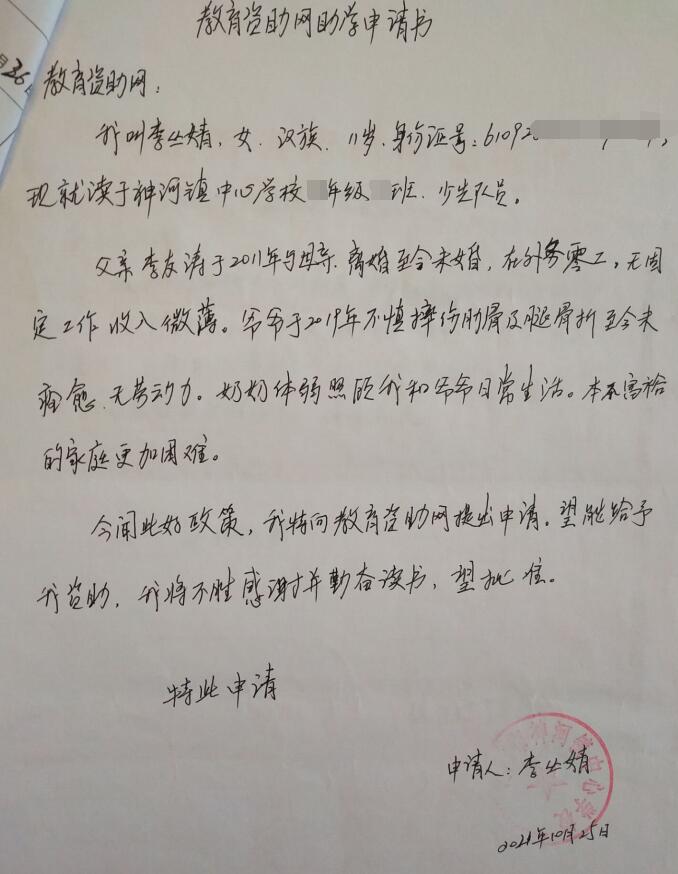 教育资助网助学申请书
月26
教育资助网：
我叫李丛婧，女．汉族．11岁．身份证号：61092
现就读于神河镇中心学校 年级 班．少先队员。
父亲李友涛于2011年与母亲离婚至今未婚，在外务零工，无固
定工作收入微薄。爷爷于2019年不慎摔伤肋骨及腿骨折至今未
痊愈．无劳动力。奶奶体弱照顾我和爷爷日常生活。本不富裕
的家庭更加困难。
今闻此好政策，我特向教育资助网提出申请。望能给予
我资助，我将不胜感谢并勤奋读书，望批准。
特此申请
神河镇中心学校
申请人：李丛婧
2021年10月25日